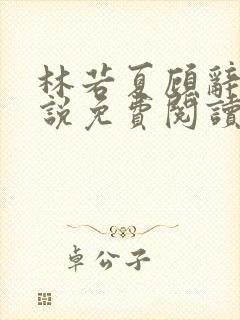 林若夏顾辭
說免費閱讀
卓公子